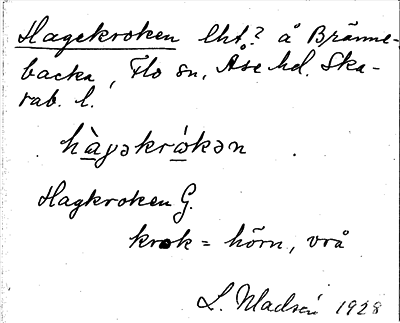 Hagekroken lht.? å Bränne-
backa, Flo sn, Åse hd. Ska-
rab. l.
hàgəkrókən
Hagkroken G.
krok = hörn, vrå
L. Madsén 1928